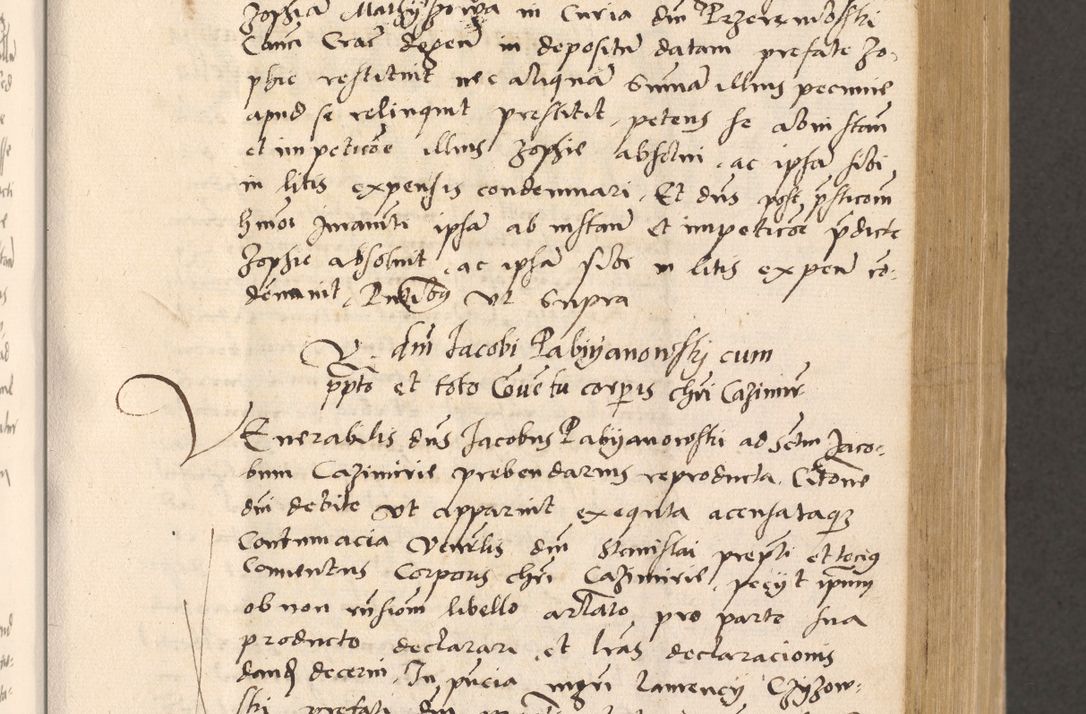 Zophiam Mathyszowa in Curia dni Przerembski
Canci Crac degen in depositu datam prefate Zo-
phie restituit nec aliquam Summa illius pecunie
apud se relinquit prestitit, petens se ab instan
et impeticoe illius Zophie absolvi, ac ipsa sibi
in litis expensis condemnari, Et dns post psticom
hmoi Juramti ipsa ab instan et impeticoe pdicte
Zophie absolvit, ac ipsa sibi in litis expen co-
demnavit, Pntibus Ut Supra
dni Jacobi Pabiyanowskj cum
ppto et toto Conventu corpis chri Cazimir
VEnerabilis dns Jacobus Pabiyanowski ad Sctm Jaco-
bum Cazimirie prebendarius reproducta Citone
dni debite ut apparuit exequta acensataque
Contumacia Venrlis dni Stanislai prepti et tocius
Conventus Corporis chri Cazimirie, pecyt ipsum
ob non rnsiom libello artlato, pro parte sua
producto declarari, et lras declaracionis
dand decerni, In pncia mgri Lamency Czyzow-
ski prefati dni